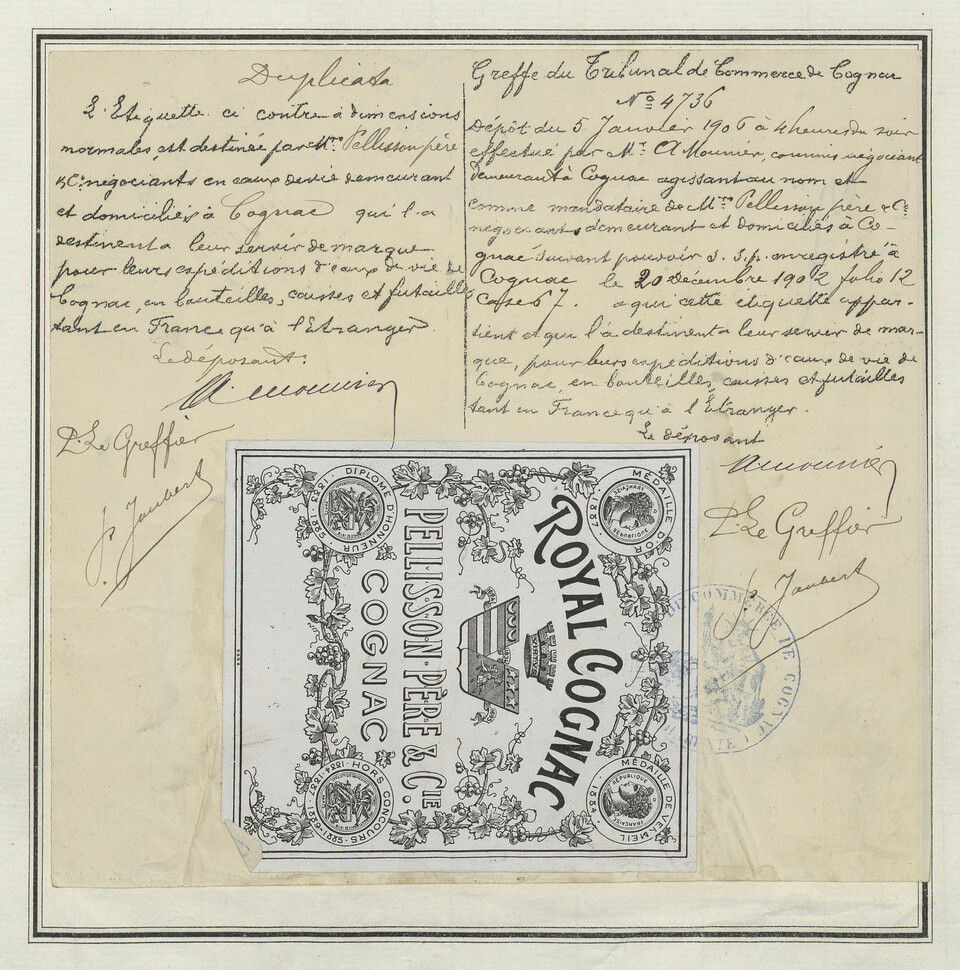 Duplicata
L'Etiquette ci contre a dimensions
normales, est destinée par Mrs. Pellisson père
& Cie négociants en eaux de vie demeurant
et domiciliés à Cognac qui l'a
destinent a leur servir de marque
pour leurs expéditions d'eaux de vie de
Cognac, en bouteilles, caisses et futailles
tant en France qu'à l'Etranger.
Le déposant:
A Mounier
P. Le Greffier
J. Jaubert
Greffe du Tribunal de Commerce de Cognac
No 4736
Dépôt du 5 Janvier 1906 à 4 heures du soir
effectué par Mr. A Mounier, commis négociant
demeurant à Cognac agissant au nom et
comme mandataire de Mrs. Pellisson père & Cie
négociants demeurant et domiciliés à Co-
gnac suivant pouvoir s. s.p. enregistré à
Cognac le 20 décembre 1902 folio 12
Case 67. a qui cette etiquette appar-
tient et qui l'a destinent a leur servir de mar-
que, pour leurs expéditions d'eaux de vie de
Cognac, en bouteilles, caisses et futailles
tant en France qu'à l'Étranger.
Le déposant
A Mounier
P. Le Greffier
J. Jaubert
ROYAL COGNAC
PELLISSON PÈRE & CIE.
COGNAC
MÉDAILLE D'OR 1887
RÉPUBLIQUE FRANÇAISE
MÉDAILLE DE VERMEIL 1884
RÉPUBLIQUE FRANÇAISE
DIPLOME D'HONNEUR 1883
HORS CONCOURS
DE COMMERCE DE COGNAC